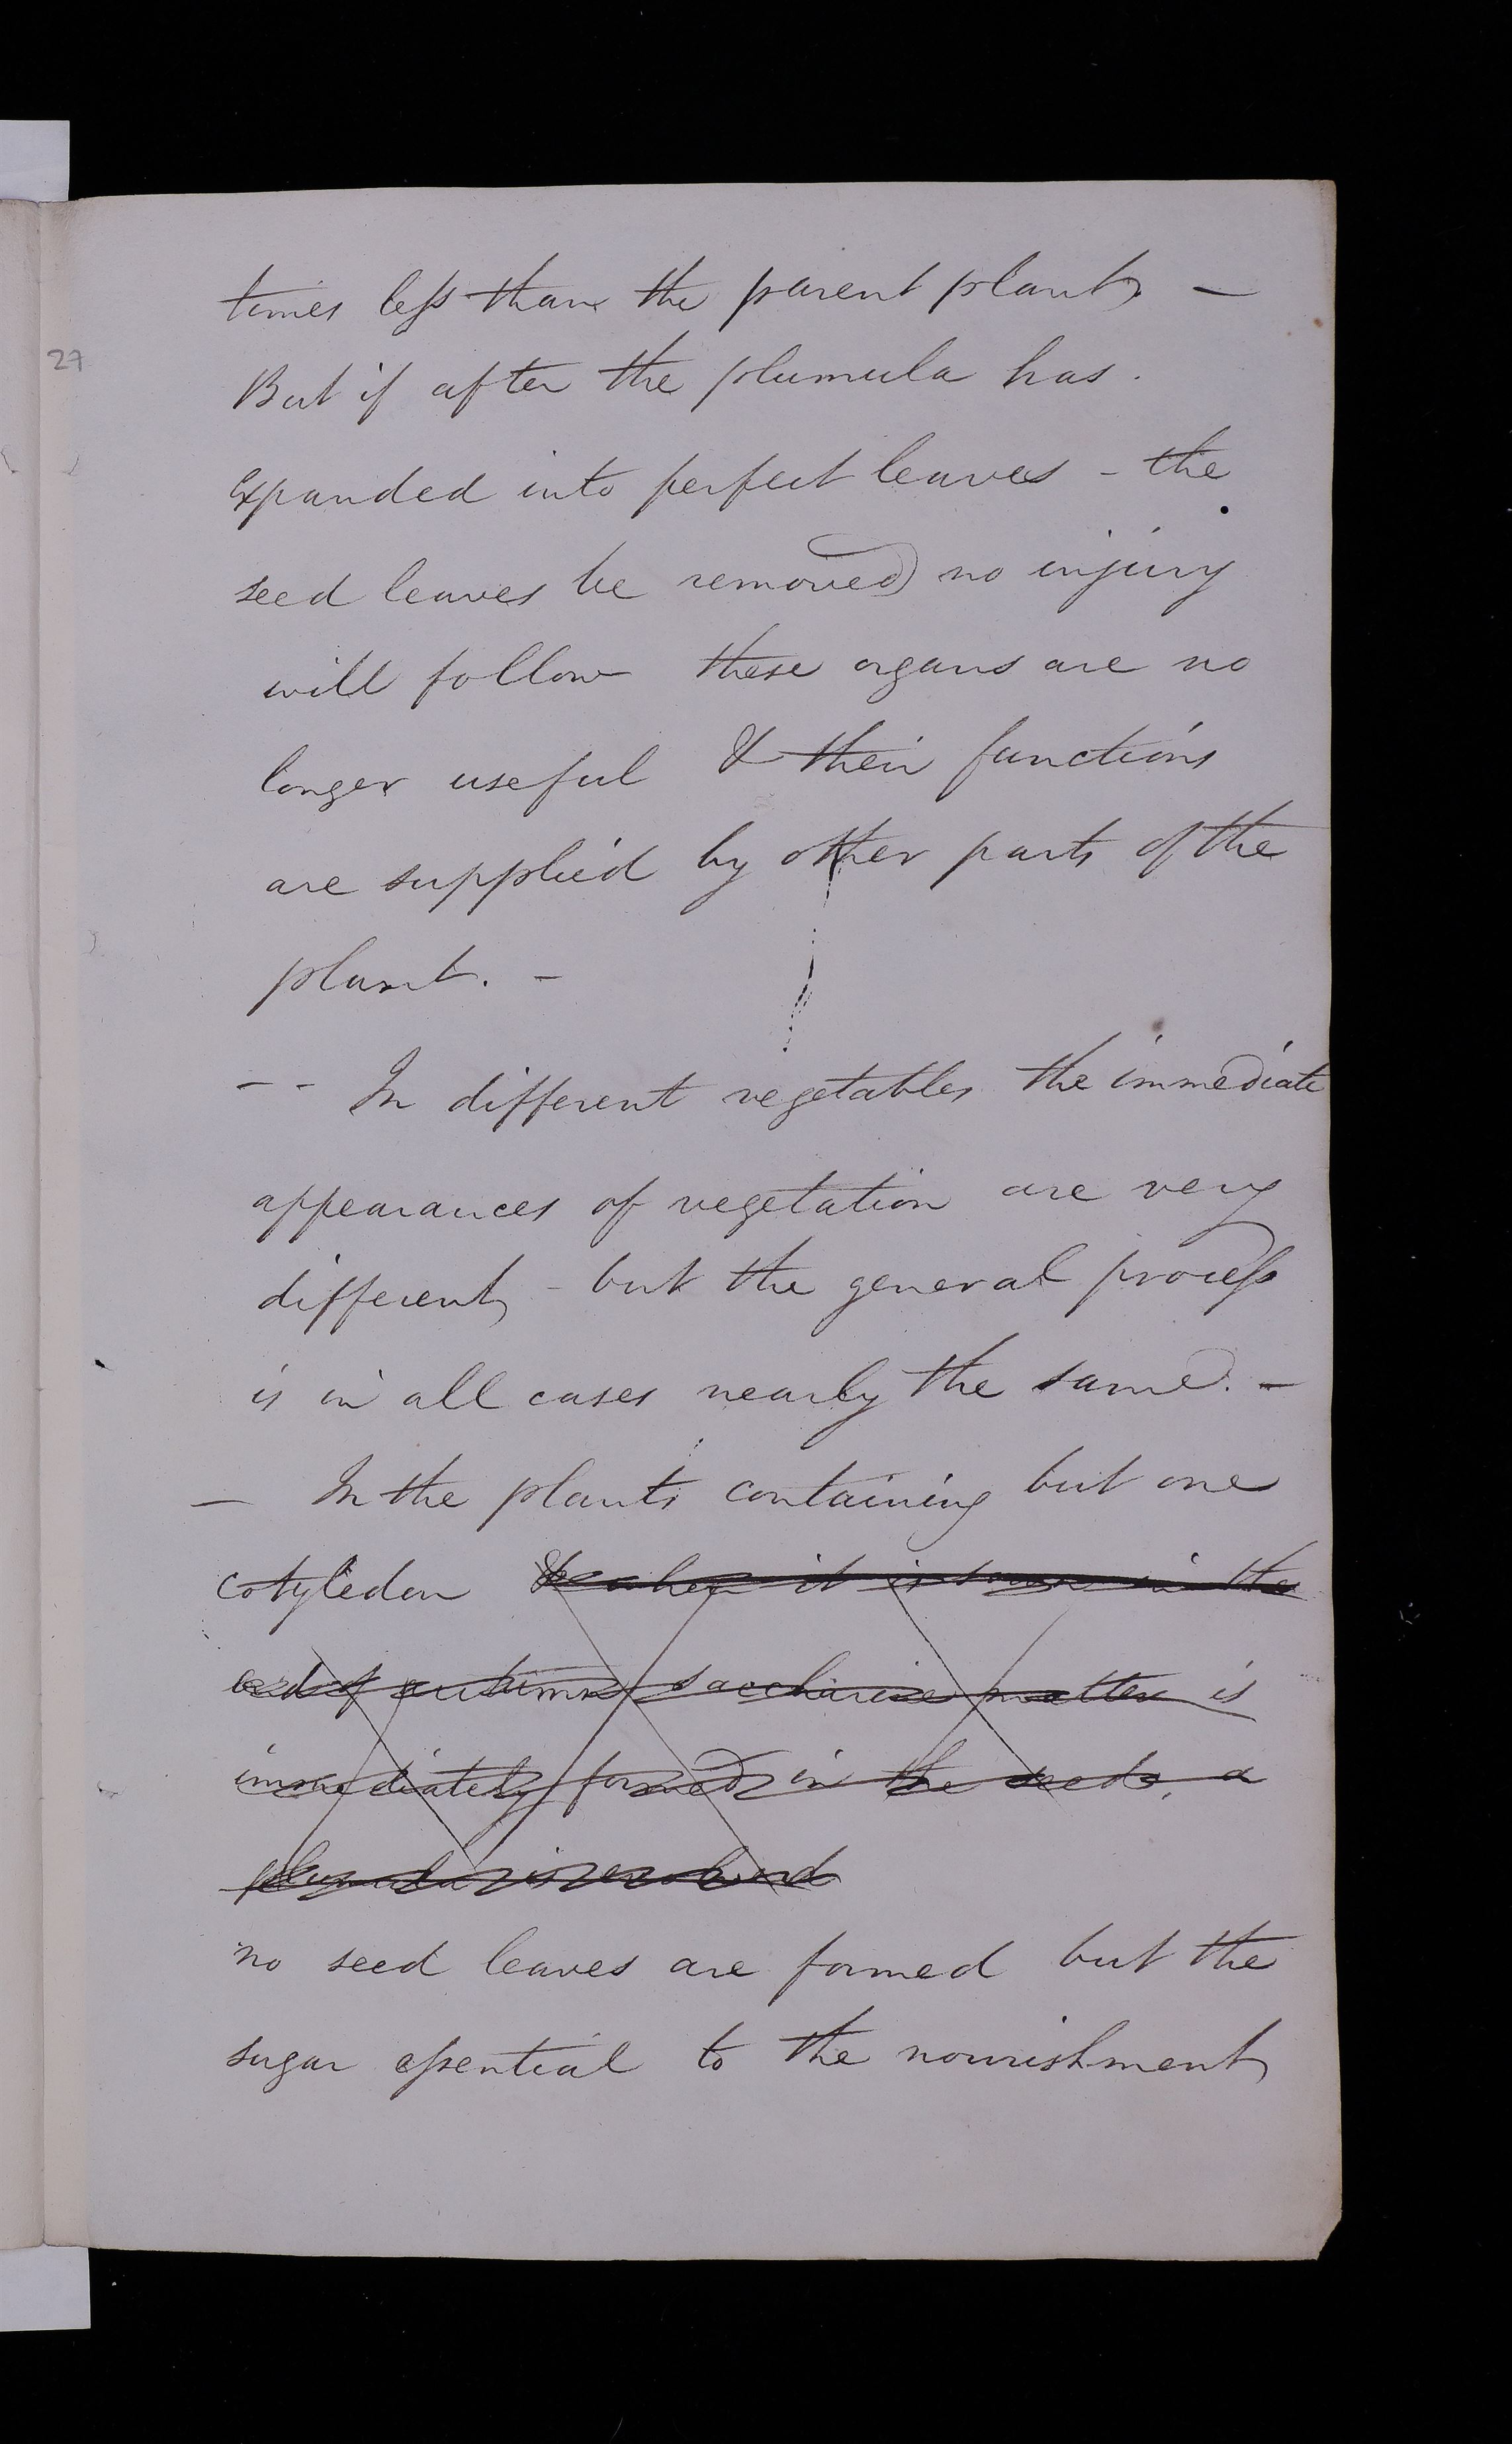 times less than the parent plant, —
27
But if after the plumula has.
expanded into perfect leaves - the
seed leaves be removed no injury
will follow these organs are no
longer useful & their functions
are supplied by other parts of the
plant. -
- - In different vegetables the immediate
appearances of vegetation are very
different - but the general process
is in all cases nearly the same. -
- In the plants containing but one
cotyledon when it is sown in the
end of autumn saccharine matter is
immediately formed in the seeds, a
plumula is evolved
no seed leaves are formed but the
sugar essential to the nourishment